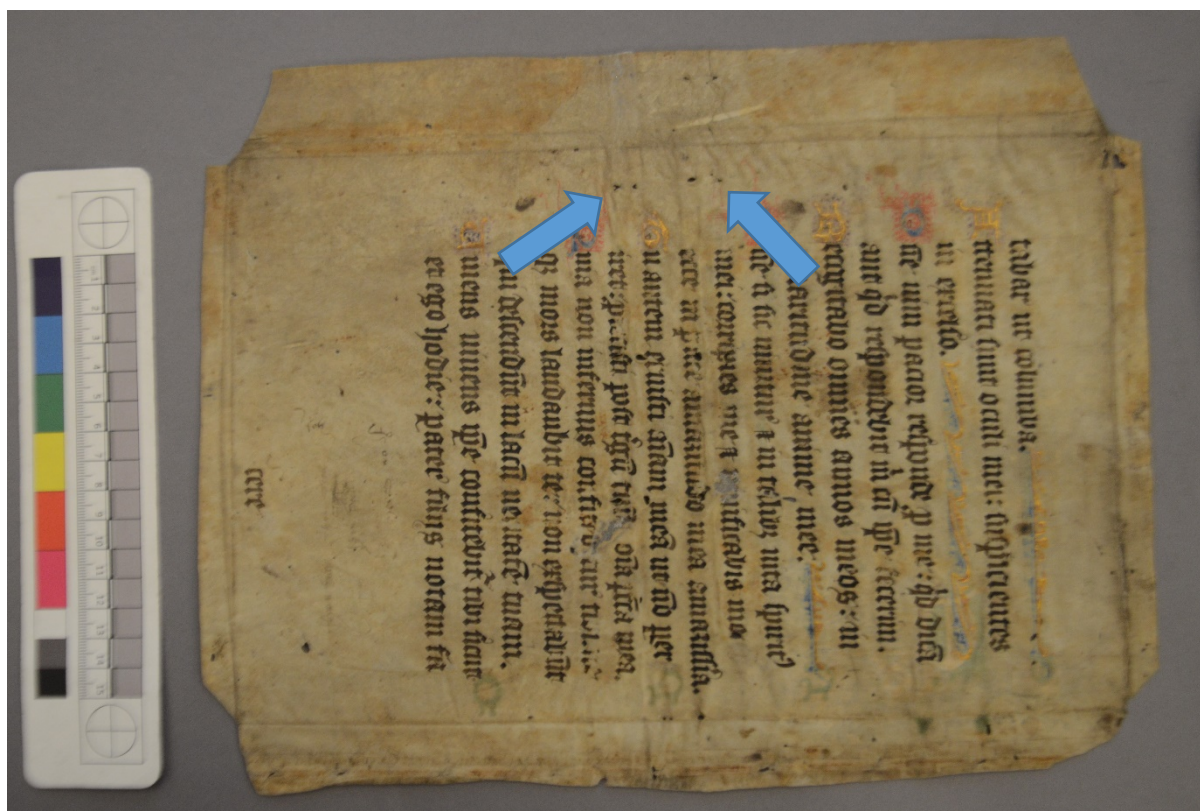 tabar ut columba.
Attenuati sunt oculi mei: suspicientes
in excelso.
Dñe vim pacior respõde p me: qd dicã
aut qd respondebit m̃ cũ ip̃e fecerim.
Recogitabo omnes annos meos: in
amaritudine anime mee.
Dñe si sic vivitur ⁊ in talibꝫ vita spiritꝰ
mei: corripies me ⁊ vivificabis me
ecce in pace amaritudo mea amarissĩa.
Tu autem eruisti aĩam meã ut nõ per
iret: post tergũ tuũ oĩa pccã mea.
Quia non infernus confitebitur tibi
qꝫ mors laudabit te: non expectabũt
qui descendũt in lacũ veritatẽ tuam.
Vivens vivens ip̃e confitebit᷑ tibi sicut
et ego hodie: pater filiis notam fa